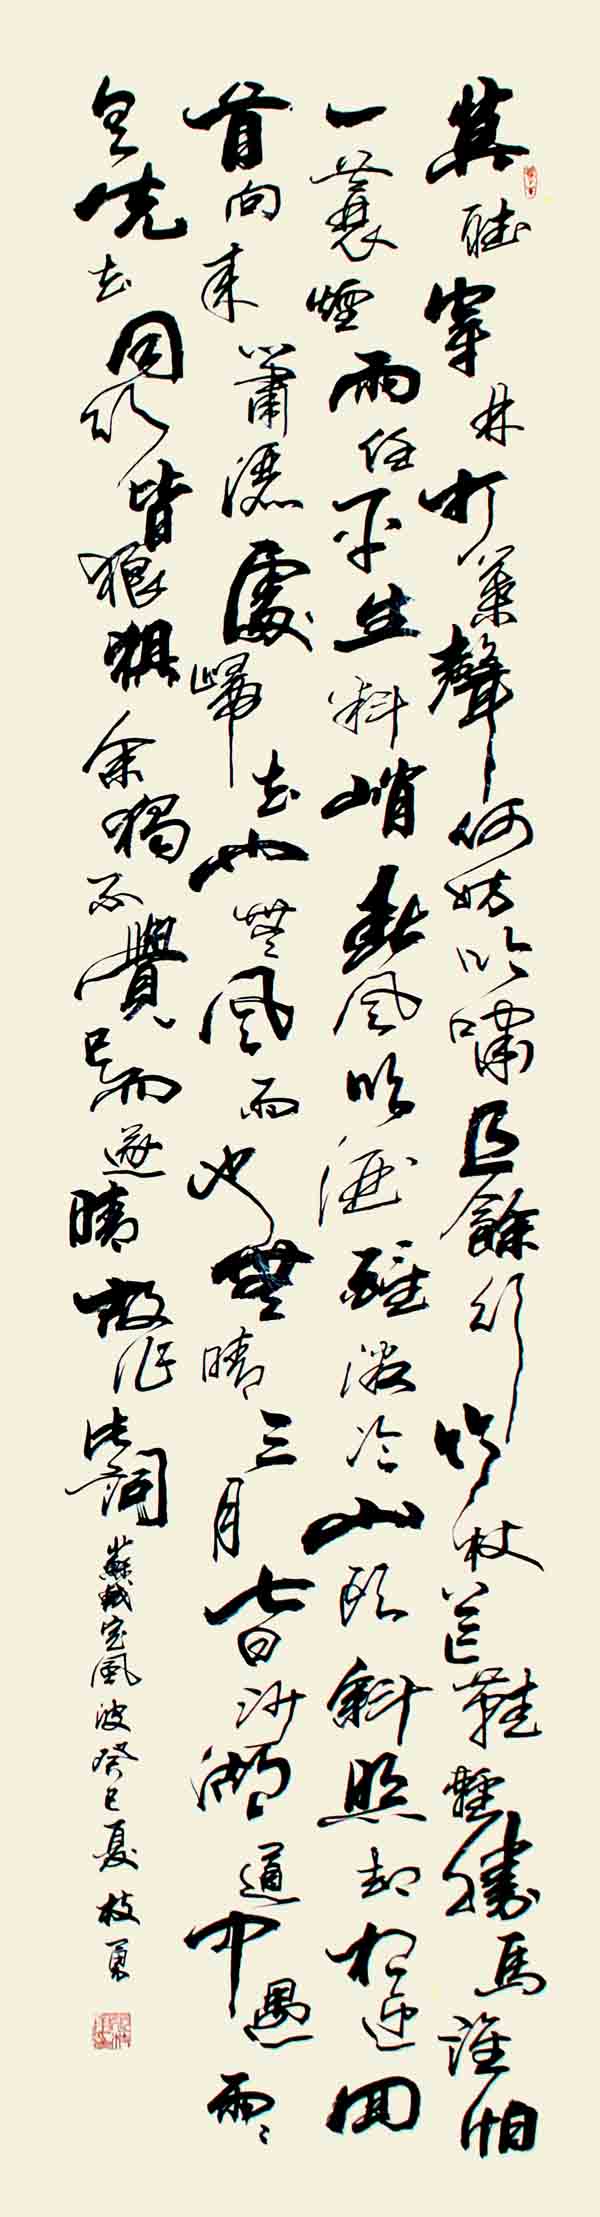 莫聽穿林打葉聲何妨吟嘯且餘行竹杖芒鞋輕勝馬誰怕
一蓑煙雨任平生料峭春風吹酒醒微冷山頭斜照却相迎回
首向來蕭灑處歸去也無風雨也無晴三月七日沙湖道中遇雨〻
具先去同行皆狼狽余獨不覺已而遂晴故作此詞蘇軾定風波癸巳夏枝勇